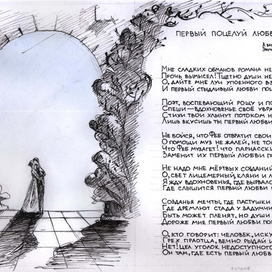 ПЕРВЫЙ ПОЦЕЛУЙ ЛЮБВ
МНЕ СЛАДКИХ ОБМАНОВ РОМАНА НЕ
ПРОЧЬ ВЫМЫСЕЛ! ТЩЕТНО ДУШИ НЕ
О, ДАЙТЕ МНЕ ЛУЧ УПОЕННОГО В
И ПЕРВЫЙ СТЫДЛИВЫЙ ЛЮБВИ ПОЦ
ПОЭТ, ВОСПЕВАЮЩИЙ РОЩУ И ПО
СПЕШИ - ВДОХНОВЕНЬЕ СВОЁ УВРА
СТИХИ ТВОИ ХЛЫНУТ ПОТОКОМ Н
ЛИШЬ ВКУСИШЬ ТЫ ПЕРВЫЙ ЛЮБВИ
НЕ БОЙСЯ, ЧТО ФЕБ ОТВРАТИТ СВОИ
О ПОМОЩИ МУЗ НЕ ЖАЛЕЙ, НЕ ТО
ЧТО ФЕБ МУЗАГЕТ! ЧТО ПАРНАССК
ЗАМЕНИТ ИХ ПЕРВЫЙ ЛЮБВИ ПО
НЕ НАДО МНЕ МЁРТВЫХ СОЗДАНИЙ
О, СВЕТ ЛИЦЕМЕРНЫЙ, КЛЯНИ И
Я ЖДУ ВДОХНОВЕНЬЯ, ГДЕ ВЫРВАЛО
ГДЕ СЛЫШИТСЯ ПЕРВЫЙ ЛЮБВИ
СОЗДАНЬЯ МЕЧТЫ, ГДЕ ПАСТУШКИ
ГДЕ ДРЕМЛЮТ СТАДА У ЗАДУМЧИ
БЫТЬ МОЖЕТ ПЛЕНЯТ, НО ДУШИ
ДОРОЖЕ МНЕ ПЕРВЫЙ ЛЮБВИ ПО
О, КТО ГОВОРИТ: ЧЕЛОВЕК, ИСКУ
ГРЕХ ПРАОТЦА, ВЕЧНО РЫДАЙ
НЕТ! ЦЕЛ УГОЛОК НЕДОСТУПНОГО
ОН ТАМ, ГДЕ ЕСТЬ ПЕРВЫЙ ЛЮБВИ